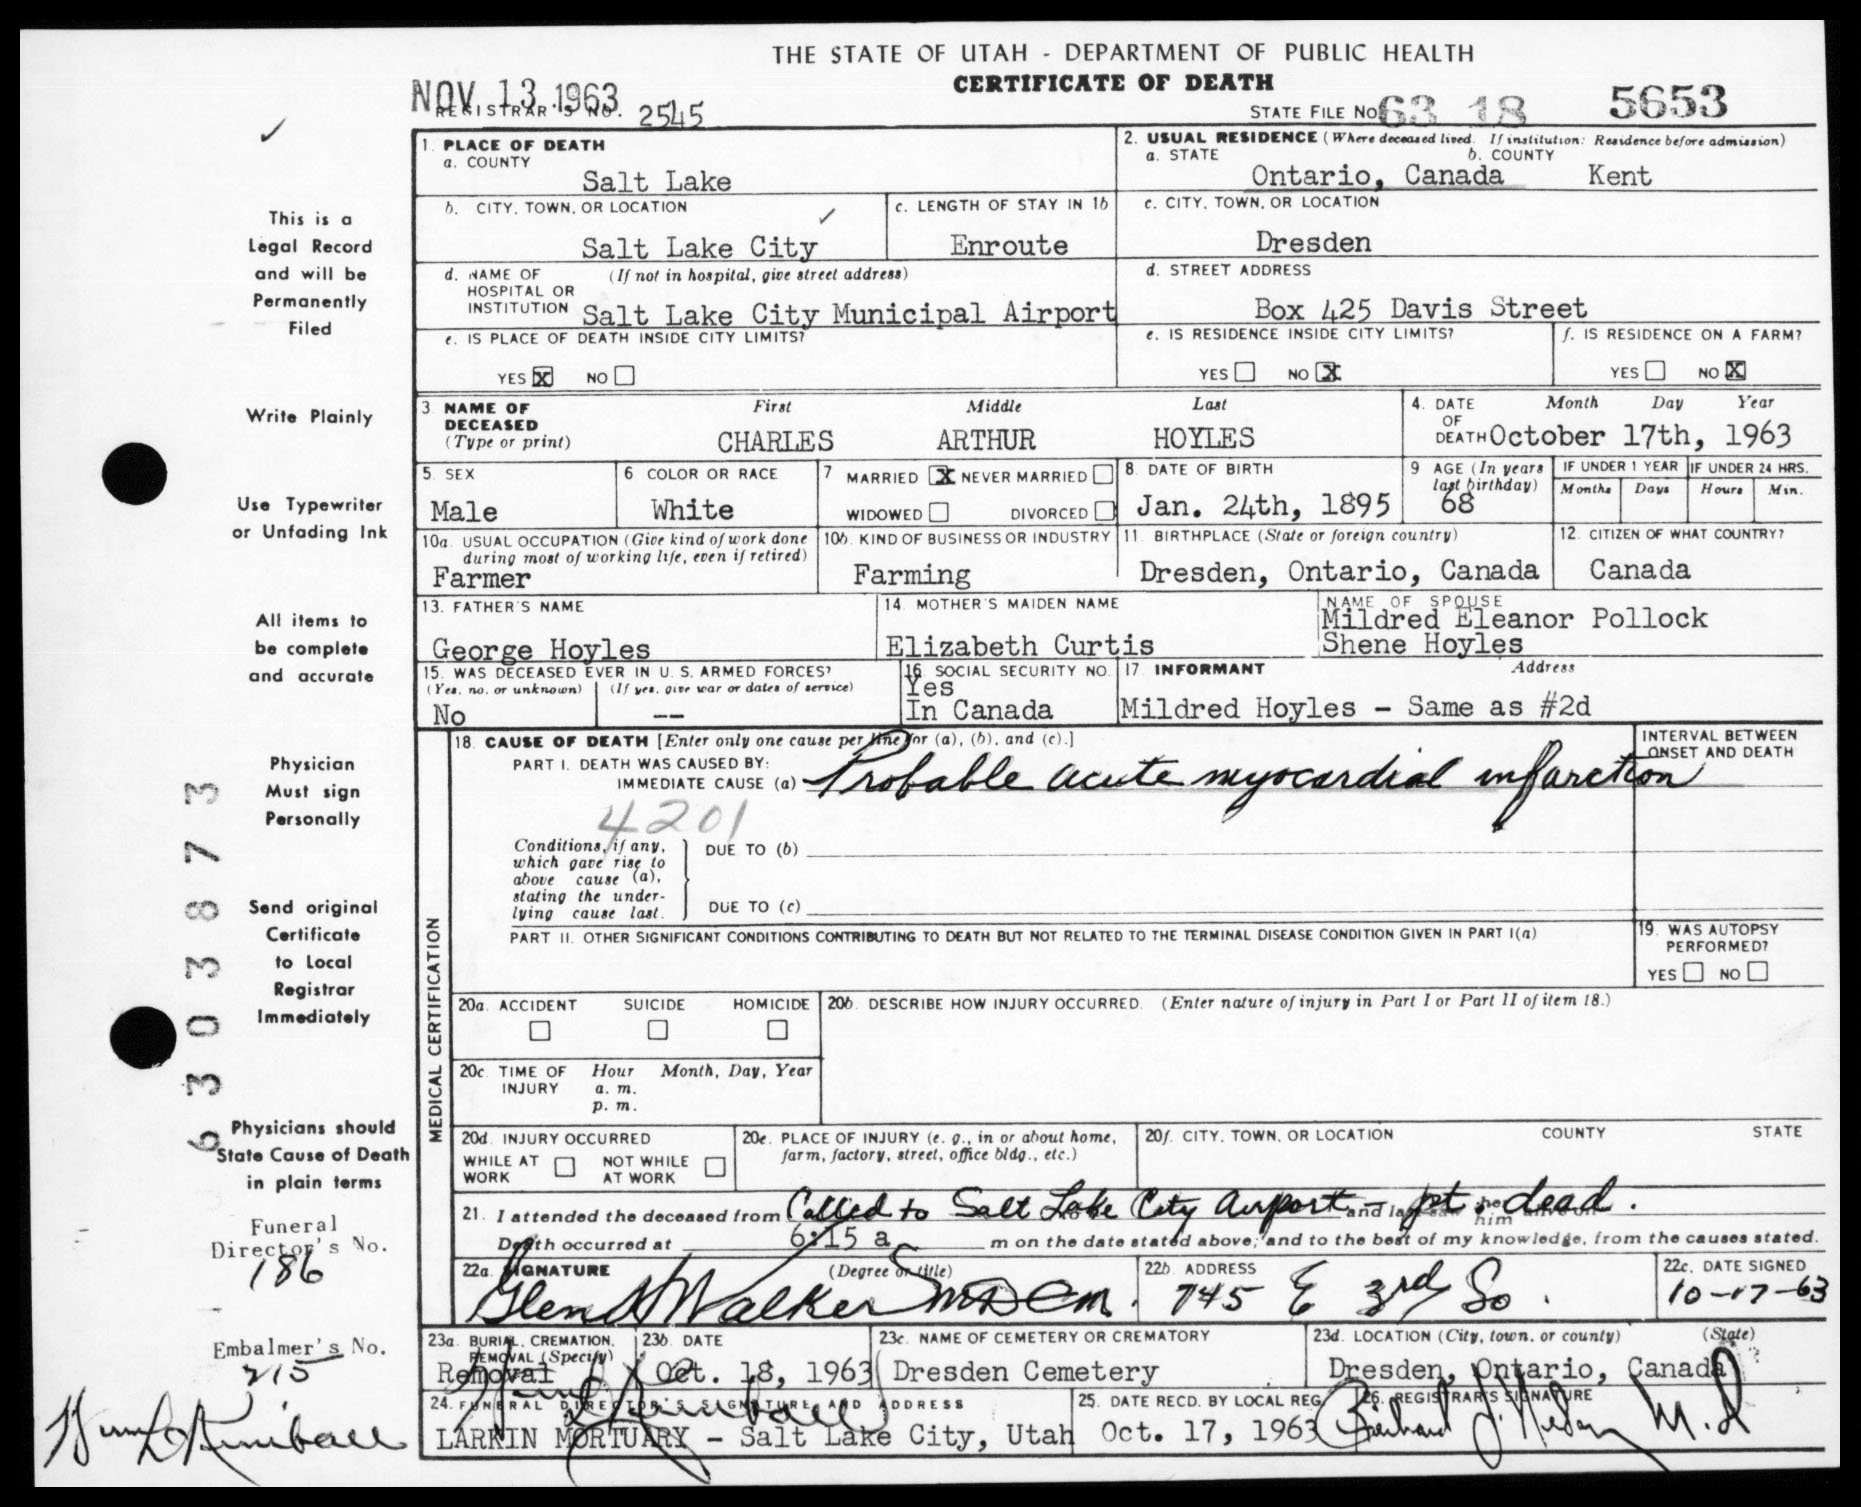 THE STATE OF UTAH - DEPARTMENT OF PUBLIC HEALTH
CERTIFICATE OF DEATH
NOV 13 1963
REGISTRAR'S NO. 2545
STATE FILE NO. 63 18 5653
This is a
Legal Record
and will be
Permanently
Filed
Write Plainly
Use Typewriter
or Unfading Ink
All items to
be complete
and accurate
Physician
Must sign
Personally
Send original
Certificate
to Local
Registrar
Immediately
Physicians should
State Cause of Death
in plain terms
Funeral
Director's No.
186
Embalmer's No.
215
6303873
1. PLACE OF DEATH
a. COUNTY
Salt Lake
2. USUAL RESIDENCE (Where deceased lived. If institution: Residence before admission)
a. STATE b. COUNTY
Ontario, Canada Kent
b. CITY, TOWN, OR LOCATION
Salt Lake City
c. LENGTH OF STAY IN 1b
Enroute
c. CITY, TOWN, OR LOCATION
Dresden
d. NAME OF HOSPITAL OR INSTITUTION (If not in hospital, give street address)
Salt Lake City Municipal Airport
d. STREET ADDRESS
Box 425 Davis Street
e. IS PLACE OF DEATH INSIDE CITY LIMITS?
YES X NO
e. IS RESIDENCE INSIDE CITY LIMITS?
YES NO X
f. IS RESIDENCE ON A FARM?
YES NO X
3. NAME OF DECEASED (Type or print)
First Middle Last
CHARLES ARTHUR HOYLES
4. DATE OF DEATH Month Day Year
October 17th, 1963
5. SEX
Male
6 COLOR OR RACE
White
7 MARRIED X NEVER MARRIED
WIDOWED DIVORCED
8. DATE OF BIRTH
Jan. 24th, 1895
9 AGE (In years last birthday)
68
IF UNDER 1 YEAR
Months Days
IF UNDER 24 HRS.
Hours Min.
10a. USUAL OCCUPATION (Give kind of work done during most of working life, even if retired)
Farmer
10b. KIND OF BUSINESS OR INDUSTRY
Farming
11. BIRTHPLACE (State or foreign country)
Dresden, Ontario, Canada
12. CITIZEN OF WHAT COUNTRY?
Canada
13. FATHER'S NAME
George Hoyles
14. MOTHER'S MAIDEN NAME
Elizabeth Curtis
NAME OF SPOUSE
Mildred Eleanor Pollock
Shene Hoyles
15. WAS DECEASED EVER IN U. S. ARMED FORCES?
(Yes, no, or unknown) (If yes, give war or dates of service)
No --
16. SOCIAL SECURITY NO.
Yes
In Canada
17. INFORMANT Address
Mildred Hoyles - Same as #2d
MEDICAL CERTIFICATION
18. CAUSE OF DEATH [Enter only one cause per line for (a), (b), and (c).]
INTERVAL BETWEEN ONSET AND DEATH
PART I. DEATH WAS CAUSED BY:
IMMEDIATE CAUSE (a) Probable acute myocardial infarction
4201
Conditions, if any,
which gave rise to
above cause (a),
stating the under-
lying cause last.
DUE TO (b)
DUE TO (c)
PART II. OTHER SIGNIFICANT CONDITIONS CONTRIBUTING TO DEATH BUT NOT RELATED TO THE TERMINAL DISEASE CONDITION GIVEN IN PART I(a)
19. WAS AUTOPSY PERFORMED?
YES NO
20a. ACCIDENT SUICIDE HOMICIDE
20b. DESCRIBE HOW INJURY OCCURRED. (Enter nature of injury in Part I or Part II of item 18.)
20c. TIME OF INJURY Hour Month, Day, Year
a. m.
p. m.
20d. INJURY OCCURRED
WHILE AT WORK NOT WHILE AT WORK
20e. PLACE OF INJURY (e. g., in or about home, farm, factory, street, office bldg., etc.)
20f. CITY, TOWN, OR LOCATION COUNTY STATE
21. I attended the deceased from Called to Salt Lake City Airport - pt. dead.
Death occurred at 6:15 a m on the date stated above; and to the best of my knowledge, from the causes stated.
22a. SIGNATURE (Degree or title)
Glen Walker
22b. ADDRESS
745 E 3rd So.
22c. DATE SIGNED
10-17-63
23a. BURIAL, CREMATION, REMOVAL (Specify)
Removal
23b. DATE
Oct. 18, 1963
23c. NAME OF CEMETERY OR CREMATORY
Dresden Cemetery
23d. LOCATION (City, town, or county) (State)
Dresden, Ontario, Canada
24. FUNERAL DIRECTOR'S SIGNATURE AND ADDRESS
LARKIN MORTUARY - Salt Lake City, Utah
25. DATE RECD. BY LOCAL REG.
Oct. 17, 1963
26. REGISTRAR'S SIGNATURE
M.D
Kimball